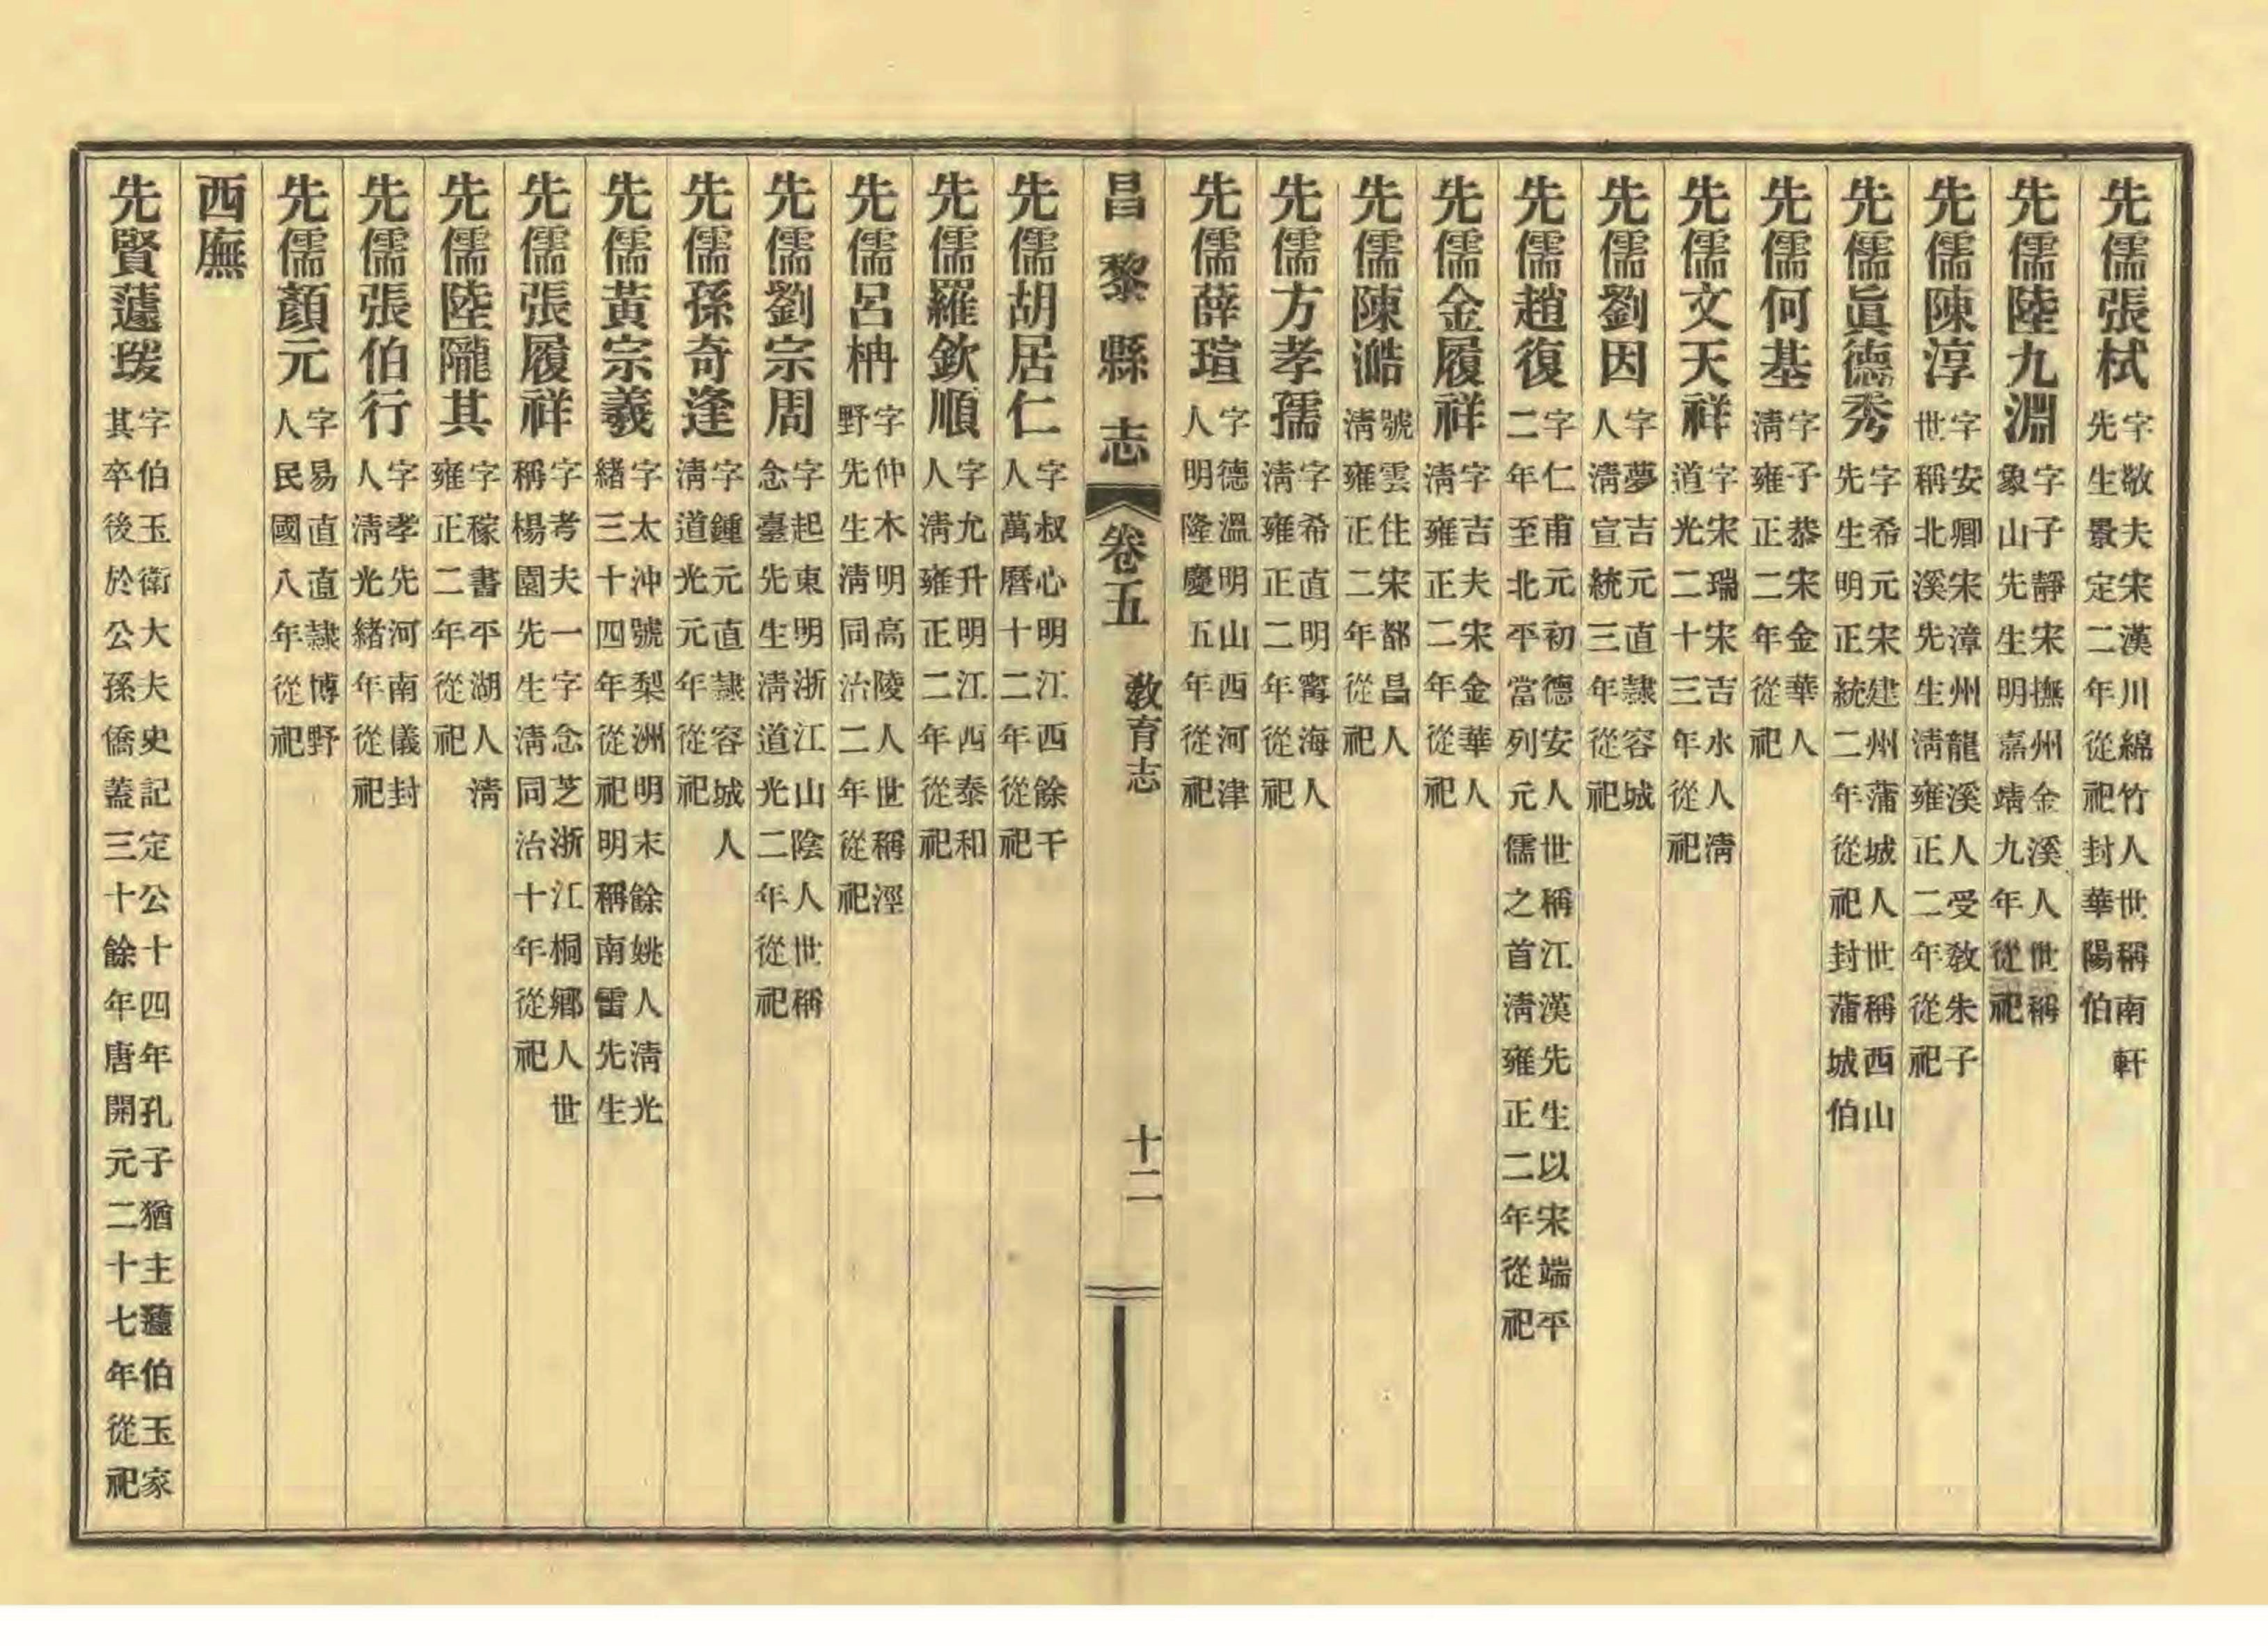 先儒張栻字敬夫宋漢川綿竹人世稱南軒先生景定二年從祀封華陽伯
先儒陸九淵字子靜宋撫州金溪人世稱象山先生明嘉靖九年從祀
先儒陳淳字安卿宋漳州龍溪人受敎朱子世稱北溪先生淸雍正二年從祀
先儒眞德秀字希元宋建州蒲城人世稱西山先生明正統二年從祀封蒲城伯
先儒何基字子恭宋金華人淸雍正二年從祀
先儒文天祥字宋瑞宋吉水人淸道光二十三年從祀
先儒劉因字夢吉元直隷容城人淸宣統三年從祀
先儒趙復字仁甫元初德安人世稱江漢先生以宋端平二年至北平當列元儒之首淸雍正二年從祀
先儒金履祥字吉夫宋金華人淸雍正二年從祀
先儒陳澔號雲住宋都昌人淸雍正二年從祀
先儒方孝孺字希直明寗海人淸雍正二年從祀
先儒薛瑄字德溫明山西河津人明隆慶五年從祀
昌黎縣志 卷五 敎育志 十二
先儒胡居仁字叔心明江西餘干人萬曆十二年從祀
先儒羅欽順字允升明江西泰和人淸雍正二年從祀
先儒呂柟字仲木明高陵人世稱涇野先生淸同治二年從祀
先儒劉宗周字起東明浙江山陰人世稱念臺先生淸道光二年從祀
先儒孫奇逢字鍾元直隷容城人淸道光元年從祀
先儒黃宗羲字太沖號梨洲明末餘姚人淸光緖三十四年從祀明稱南雷先生
先儒張履祥字考夫一字念芝浙江桐鄕人世稱楊園先生淸同治十年從祀
先儒陸隴其字稼書平湖人淸雍正二年從祀
先儒張伯行字孝先河南儀封人淸光緖年從祀
先儒顏元字易直直隷博野人民國八年從祀
西廡
先賢蘧瑗字伯玉衛大夫史記定公十四年孔子猶主蘧伯玉家其卒後於公孫僑蓋三十餘年唐開元二十七年從祀